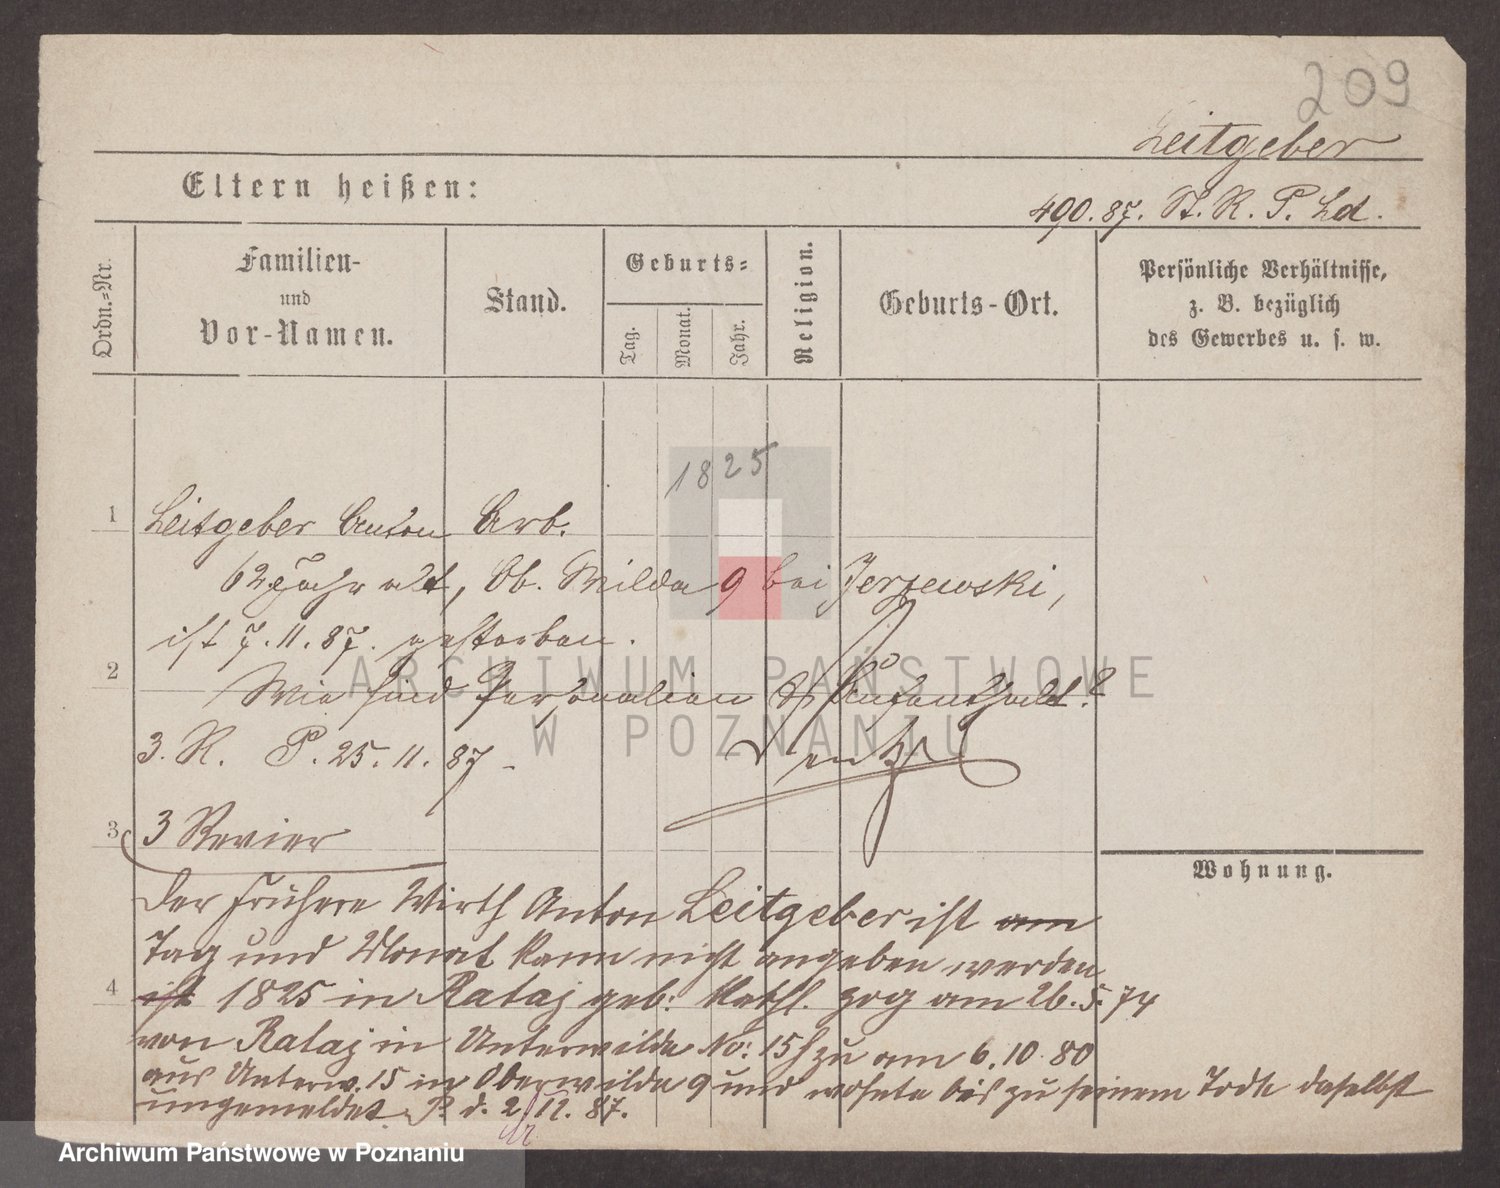 209
Leitgeber
Eltern heißen:
490.87. St. R. P. Ld.
Ordn.=Nr.
Familien-
und
Vor-Namen.
Stand.
Geburts=
Tag.
Monat.
Jahr.
Religion.
Geburts-Ort.
Persönliche Verhältnisse,
z. B. bezüglich
des Gewerbes u. s. w.
1825
1 Leitgeber Anton Arb.
62 Jahr alt, Ob. Wilda 9 bei Jerzewski,
ist 7.11.87. gestorben.
2
Wie sind Personalien & Aufenthalt?
3. R. P. 25.11.87
3 3 Revier
Wohnung.
Der frühere Wirth Anton Leitgeber ist am
Tag und Monat kann nicht angeben werden
4 ist 1825 in Rataj geb: kathl. zog am 26.5.74
von Rataj in Unterwilda No: 15 zu am 6.10.80
aus Unterw. 15 in Oberwilda 9 und wohnte bis zu seinem Tode daselbst
ungemeldet. P. d. 2/12.87.
ARCHIWUM PAŃSTWOWE
W POZNANIU
Archiwum Państwowe w Poznaniu